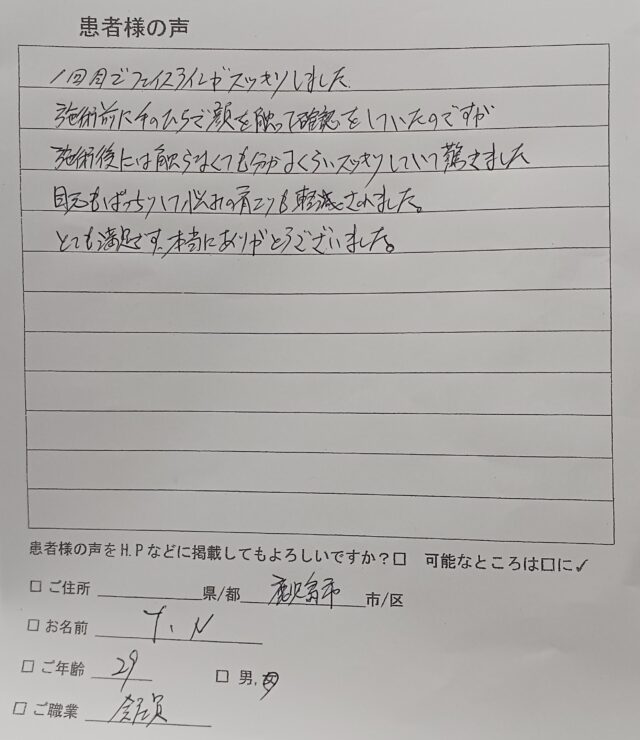 患者様の声
1回目でフェイスラインがスッキリしました
施術前に手のひらで顔を触って確認をしていたのですが
施術後には触らなくても分かるくらいスッキリしていて驚きました
目元もぱっちりして悩みの肩こりも軽減されました。
とても満足です。本当にありがとうございました。
患者様の声をH.Pなどに掲載してもよろしいですか?□ 可能なところは□に✓
□ ご住所 県/都 鹿児島市 市/区
□ お名前 T.N
□ ご年齢 29 □ 男,女
□ ご職業 会社員